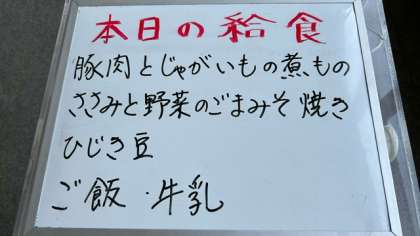 本日の給食
豚肉とじゃがいもの煮もの
ささみと野菜のごまみそ焼き
ひじき豆
ご飯・牛乳